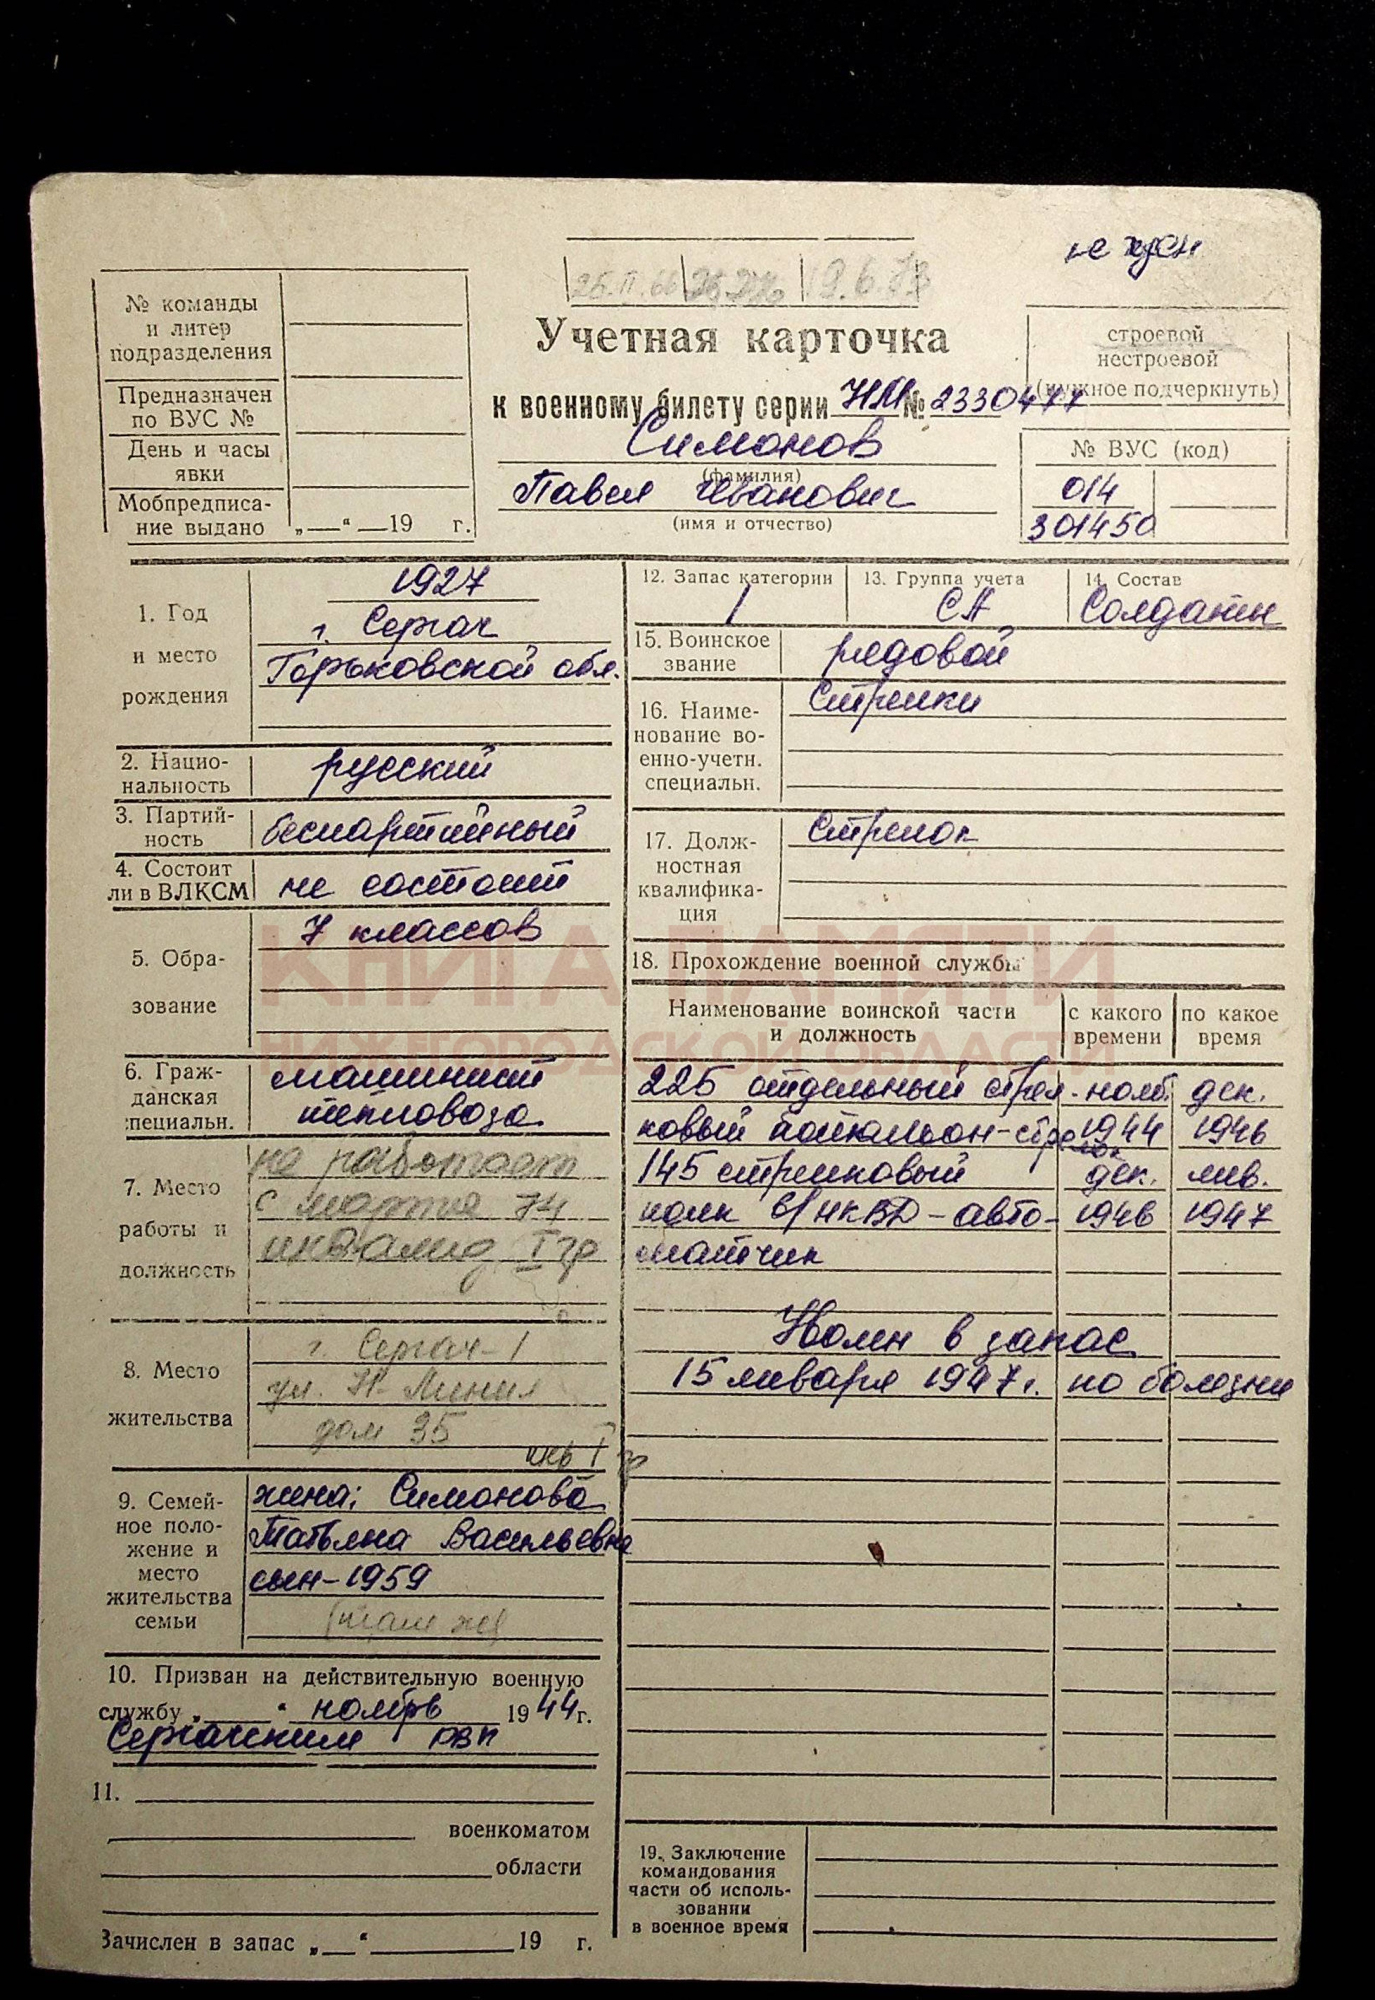 19.6.73
№ команды
и литер
подразделения
Предназначен
по ВУС №
День и часы
явки
Мобпредписа-
ние выдано „ — “ — 19 г.
Учетная карточка
к военному билету серии НМ № 2330477
Симонов
(фамилия)
Павел Иванович
(имя и отчество)
строевой
нестроевой
(нужное подчеркнуть)
№ ВУС (код)
014
301450
1. Год
и место
рождения
1927
г. Сергач
Горьковской обл.
2. Нацио-
нальность
русский
3. Партий-
ность
беспартийный
4. Состоит
ли в ВЛКСМ
не состоит
5. Обра-
зование
7 классов
6. Граж-
данская
специальн.
машинист
тепловоза
7. Место
работы и
должность
не работает
с марта 74
инвалид I гр
8. Место
жительства
г. Сергач-1
ул. Н-Линия
дом 35
инв I гр
9. Семей-
ное поло-
жение и
место
жительства
семьи
жена: Симонова
Татьяна Васильевна
сын-1959
(там же)
10. Призван на действительную военную
службу „ “ ноябрь 1944 г.
Сергачским РВК
11.
военкоматом
области
Зачислен в запас „ — “ 19 г.
12. Запас категории
1
13. Группа учета
СА
14. Состав
Солдаты
15. Воинское
звание
рядовой
16. Наиме-
нование во-
енно-учетн.
специальн.
Стрелки
17. Долж-
ностная
квалифика-
ция
Стрелок
18. Прохождение военной службы
Наименование воинской части
и должность
с какого
времени
по какое
время
225 отдельный стрел- нояб. дек.
ковый батальон-стрелок 1944 1946
145 стрелковый дек. янв.
полк в/НКВД-авто- 1946 1947
матчик
Уволен в запас
15 января 1947г. по болезни
19. Заключение
командования
части об исполь-
зовании
в военное время
КНИГА ПАМЯТИ
НИЖЕГОРОДСКОЙ ОБЛАСТИ